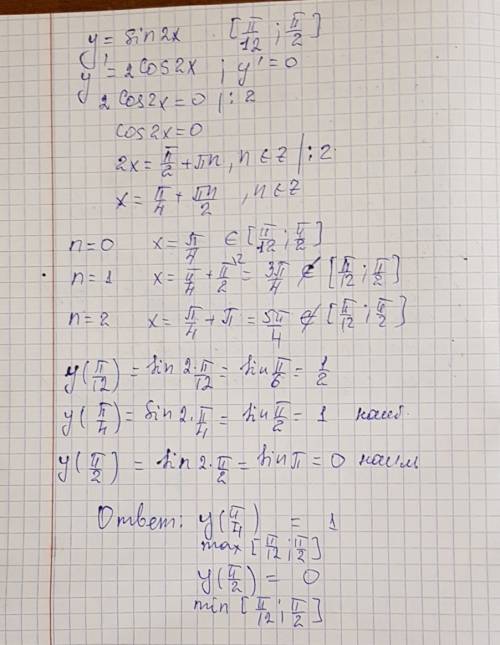 y = sin2x [π/12 ; π/2]
y' = 2cos2x ; y' = 0
2cos2x = 0 |: 2
cos2x = 0
2x = π/2 + πn, n ∈ Z |: 2
x = π/4 + πn/2 , n ∈ Z
n = 0 x = π/4 ∈ [π/12 ; π/2]
n = 1 x = π/4 + π/2 = 3π/4 ∉ [π/12 ; π/2]
n = 2 x = π/4 + π = 5π/4 ∉ [π/12 ; π/2]
y(π/12) = sin 2·π/12 = sin π/6 = 1/2
y(π/4) = sin 2·π/4 = sin π/2 = 1 наиб.
y(π/2) = sin 2·π/2 = sin π = 0 наим
Ответ: y(π/4) = 1
max [π/12 ; π/2]
y(π/2) = 0
min [π/12 ; π/2]